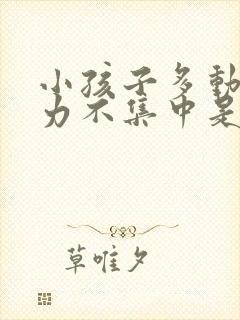 小孩子多動
力不集中是
草唯夕